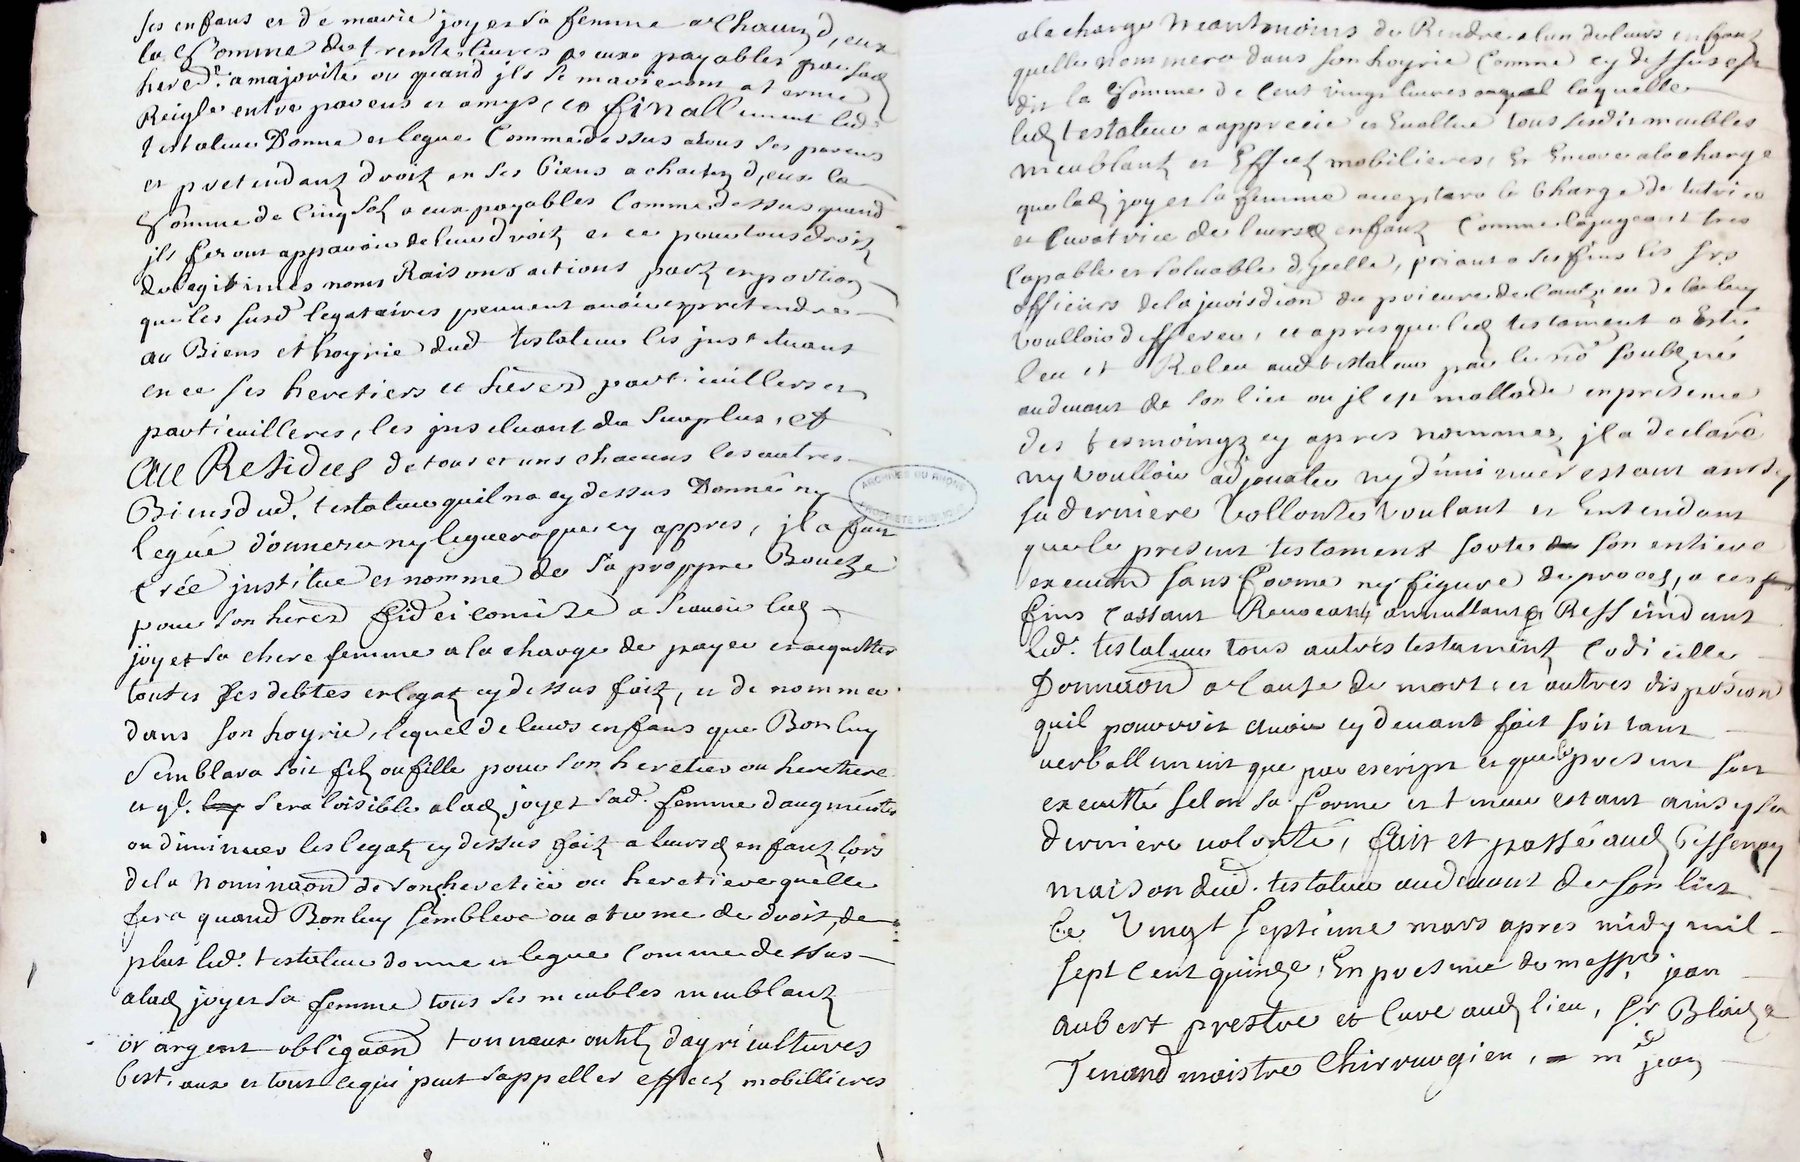 ses enfans et de marie joyet sa femme a Chacun d'eux
la Somme de trente livres a eux payables par sad
hered. a majorité ou quand jls se marieront at erme
Reigle entre parens et amys, et finallement led.
testateur Donne et legue Comme dessus a tous ses parens
et pretendantz droit en ses biens a chacun d'eux la
Somme de Cinq Solz a eux payables Comme dessus quand
jls feront apparoir de leurs droitz et ce pour tous droitz
de legitimes noms Raisons actions partz et portion
que les susd legataires peuvent avoir et pretendre
au Biens et hoyrie dud testateur les jnstituant
en ce ses heretiers et hered particuilliers et
particuilleres, les jnscluant du Surplus, et
Au Residus de tous et uns chacuns les autres
Biens dud. testateur quil na cy dessus Donné ny
legué donnera ny leguera que cy appres, jl a fait
créé jnstitue et nomme de sa proppre Bouche
pour son hered fideicomise a scavoir lad
joyet sa chere femme a la charge de payer et acquitter
toutes ses debtes et legatz cy dessus faitz, et de nommer
dans son hoyrie, lequel de leurs enfans que Bon luy
Semblera soit filz ou fille pour son heretier ou heretiere
et ql. sera loisible a lad joyet sad. femme d'augmenter
ou diminuer les legatz cy dessus faitz a leursd enfantz lors
de la Nominaõn de son heretier ou heretiere quelle
fera quand Bon luy semblera ou a terme de droit, de
plus led. testateur donne et legue Comme dessus
a lad joyet sa femme tous ses meubles meublantz
or argent obligaõn tonneaux outilz d'agricultures
bestiaux et tout ce qui peut s'appeller effectz mobillieres
a la charge Neantmoins de Rendre a lun de leurs enfantz
quelle nommera dans son hoyrie Comme cy dessus est
dit la Somme de Cent vingt livres laquelle
led testateur a apprecié et Evallué tous sesdits meubles
meublantz et Effectz mobilieres, Et Encore a la charge
que lad joyet sa femme acceptera la Charge de tutrice
et Curatrice de leursd enfantz Comme la jugeant tres
Capable et solvable dycelle, priant a ses fins les Srs
officiers de la jurisdiõn du prieuré de de la luy
voulloir defferer, et apres que led testament a Esté
leu et Releu aud testateur par le nõ soubzné
au devant de son lict ou jl est mallade en presence
des tesmoingz cy apres nommes, jl a declaré
ny voulloir adjouster ny diminuer estant ainsy
sa derniere Vollonté voulant et Entendant
que le present testament sorte son entiere
execuõn sans forme ny figure de proces, a ces
fins Cassant Revocant annullant & Resscindant
led. testateur tous autres testamentz Codicille
Donnaõn a Cause de mort et autres disposiõn
quil pourroit avoir cy devant fait soit tant
verballement que par escript et que le present soit
executté selon sa forme et teneur estant ainsy sa
derniere volonté, fait et passé aud bessenay
maison dud. testateur au devant de son lict
Ce Vingt septieme mars apres midy mil
sept Cent quinze, En presence de messre jean
aubert prestre et Curé aud lieu, Sr Blaize
Tenand maistre Chirurgien, me jean
ARCHIVES DU RHONE
PROPRIETE PUBLIQUE